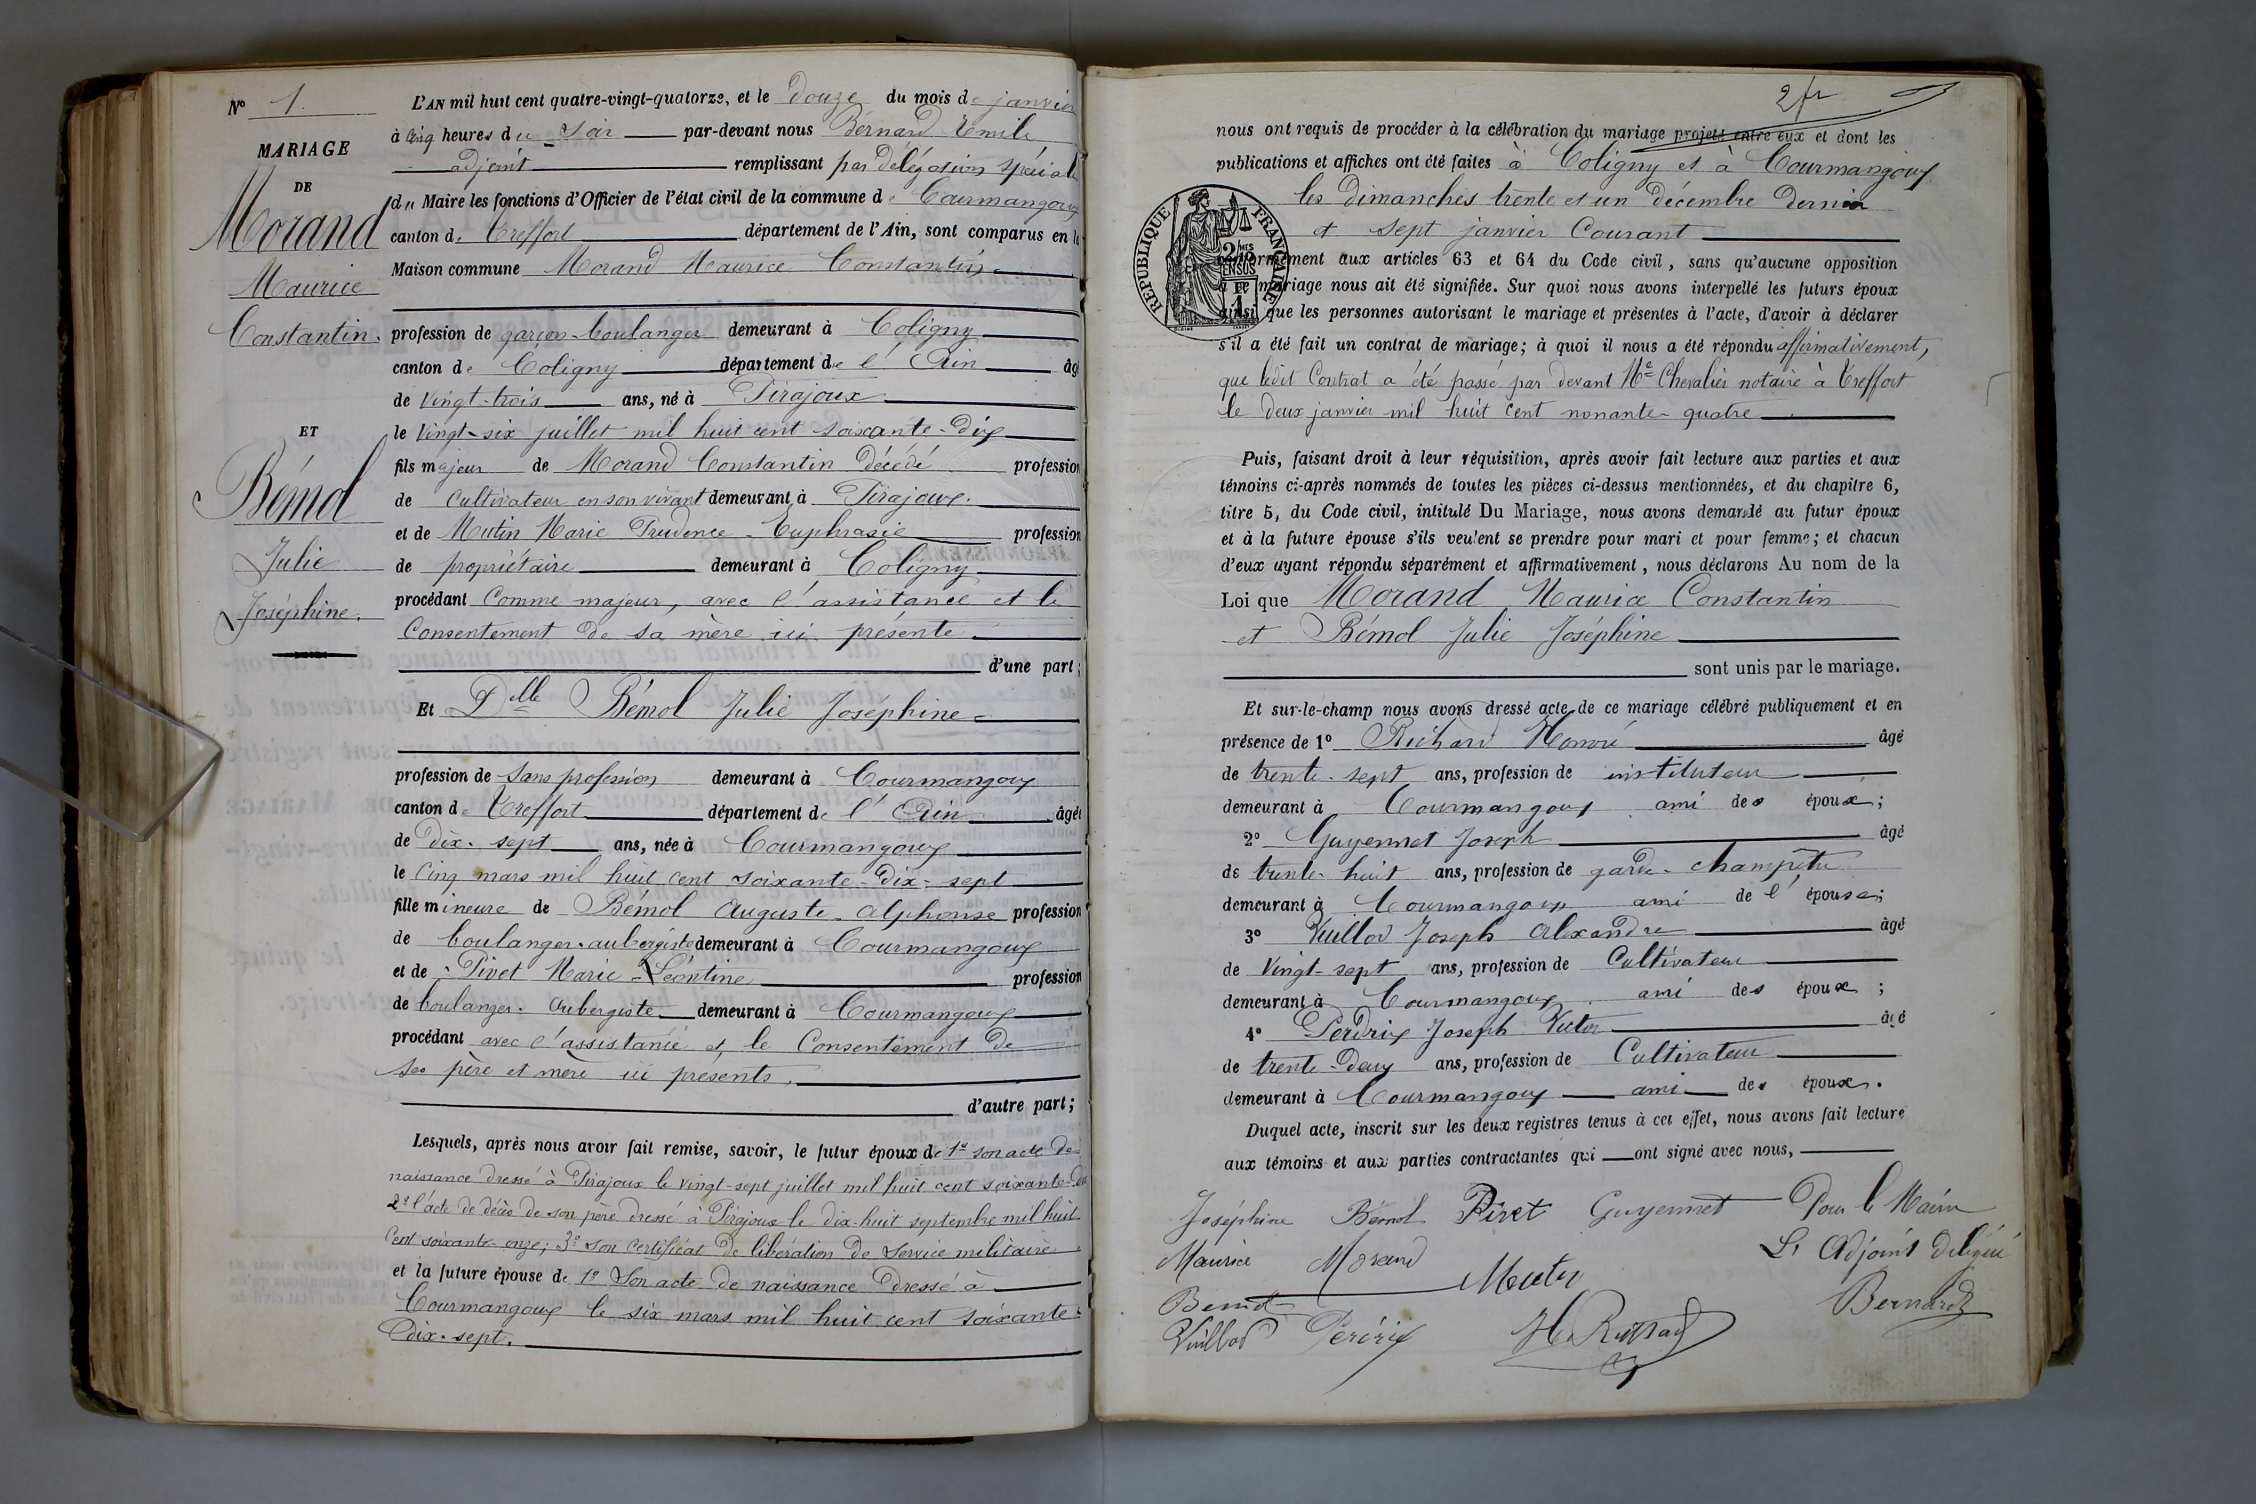 N° 1.
MARIAGE
DE
Morand
Maurice
Constantin.
ET
Bémol
Julie
Joséphine.
L'AN mil huit cent quatre-vingt-quatorze, et le douze du mois de janvier
à cinq heures du soir par-devant nous Bernard Emile
adjoint remplissant par délégation spéciale
du Maire les fonctions d'Officier de l'état civil de la commune de Courmangoux
canton de Treffort département de l'Ain, sont comparus en la
Maison commune Morand Maurice Constantin
profession de garçon-boulanger demeurant à Coligny
canton de Coligny département de l'Ain âgé
de vingt-trois ans, né à Pirajoux
le vingt-six juillet mil huit cent soixante-dix
fils majeur de Morand Constantin décédé profession
de cultivateur en son vivant demeurant à Pirajoux.
et de Mutin Marie Prudence Euphrasie profession
de propriétaire demeurant à Coligny
procédant comme majeur, avec l'assistance et le
consentement de sa mère ici présente
d'une part;
Et Dlle Bémol Julie Joséphine
profession de sans profession demeurant à Courmangoux
canton de Treffort département de l'Ain âgée
de dix-sept ans, née à Courmangoux
le cinq mars mil huit cent soixante-dix-sept
fille mineure de Bémol Auguste Alphonse profession
de boulanger-aubergiste demeurant à Courmangoux
et de Pivet Marie Léontine profession
de boulanger-aubergiste demeurant à Courmangoux
procédant avec l'assistance et le consentement de
ses père et mère ici presents,
d'autre part;
Lesquels, après nous avoir fait remise, savoir, le futur époux de 1° son acte de
naissance dressé à Pirajoux le vingt-sept juillet mil huit cent soixante-dix
2° l'acte de décès de son père dressé à Pirajoux le dix-huit septembre mil huit
cent soixante-onze; 3° son certificat de libération de service militaire
et la future épouse de 1° Son acte de naissance dressé à
Courmangoux le six mars mil huit cent soixante
dix-sept.
2fr
nous ont requis de procéder à la célébration du mariage projeté entre eux et dont les
publications et affiches ont été faites à Coligny et à Courmangoux
les dimanches trente et un décembre dernier
et sept janvier courant
RÉPUBLIQUE FRANÇAISE
conformément aux articles 63 et 64 du Code civil, sans qu'aucune opposition
à ce mariage nous ait été signifiée. Sur quoi nous avons interpellé les futurs époux
ainsi que les personnes autorisant le mariage et présentes à l'acte, d'avoir à déclarer
s'il a été fait un contrat de mariage; à quoi il nous a été répondu affirmativement,
que ledit contrat a été passé par devant Me Chevalier notaire à Treffort
le deux janvier mil huit cent nonante-quatre
Puis, faisant droit à leur réquisition, après avoir fait lecture aux parties et aux
témoins ci-après nommés de toutes les pièces ci-dessus mentionnées, et du chapitre 6,
titre 5, du Code civil, intitulé Du Mariage, nous avons demandé au futur époux
et à la future épouse s'ils veulent se prendre pour mari et pour femme; et chacun
d'eux ayant répondu séparément et affirmativement, nous déclarons Au nom de la
Loi que Morand Maurice Constantin
et Bémol Julie Joséphine
sont unis par le mariage.
Et sur-le-champ nous avons dressé acte de ce mariage célébré publiquement et en
présence de 1° Honoré âgé
de trente-sept ans, profession de instituteur
demeurant à Courmangoux ami des époux;
2° Guyennet Joseph âgé
de trente-huit ans, profession de garde-champêtre
demeurant à Courmangoux ami de l'épouse;
3° Vuillod Joseph Alexandre âgé
de vingt-sept ans, profession de Cultivateur
demeurant à Courmangoux ami des époux;
4° Perdrix Joseph Victor âgé
de trente-deux ans, profession de Cultivateur
demeurant à Courmangoux ami des époux.
Duquel acte, inscrit sur les deux registres tenus à cet effet, nous avons fait lecture
aux témoins et aux parties contractantes qui ont signé avec nous,
Joséphine Bémol Pivet Guyennet Pour le Maire
Maurice Morand Mutin L'Adjoint délégué
Bémol Bernard
Vuillod Perdrix